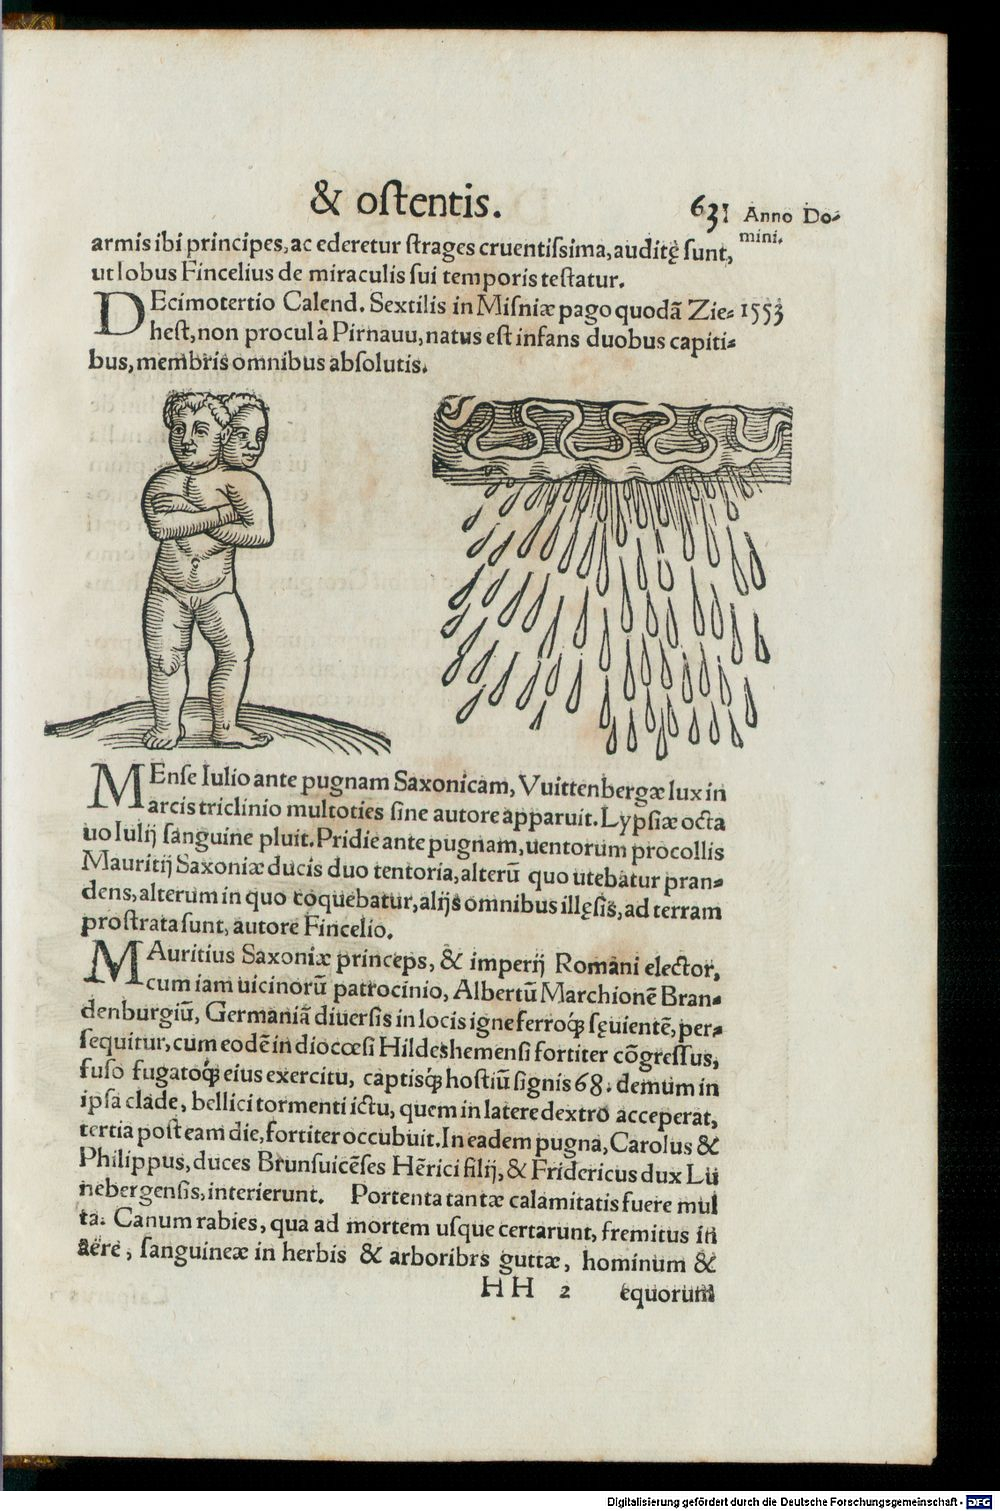 & oſtentis. 631 Anno Do-
mini.
armis ibi principes, ac ederetur ſtrages cruentiſsima, auditę ſunt,
ut Iobus Fincelius de miraculis ſui temporis teſtatur.
DEcimotertio Calend. Sextilis in Miſniæ pago quodā Zie- 1553
heſt, non procul à Pirnauu, natus eſt infans duobus capiti-
bus, membris omnibus abſolutis.
MEnſe Iulio ante pugnam Saxonicam, Vuittenbergæ lux in
arcis triclinio multoties ſine autore apparuit. Lypſiæ octa
uo Iulij ſanguine pluit. Pridie ante pugnam, uentorum procollis
Mauritij Saxoniæ ducis duo tentoria, alterū quo utebatur pran-
dens, alterum in quo coquebatur, alijs omnibus illęſis, ad terram
proſtrata ſunt, autore Fincelio.
MAuritius Saxoniæ princeps, & imperij Romani elector,
cum iam uicinorū patrocinio, Albertū Marchionē Bran-
denburgiū, Germaniā diuerſis in locis igne ferroq́; ſęuientē, per-
ſequitur, cum eodē in diocœſi Hildeshemenſi fortiter cōgreſſus,
fuſo fugatoq́; eius exercitu, captisq́; hoſtiū ſignis 68. demum in
ipſa clade, bellici tormenti ictu, quem in latere dextro acceperat,
tertia poſt eam die, fortiter occubuit. In eadem pugna, Carolus &
Philippus, duces Brunſuicēſes Hērici filij, & Fridericus dux Lu
nebergenſis, interierunt. Portenta tantæ calamitatis fuere mul
ta. Canum rabies, qua ad mortem uſque certarunt, fremitus in
aëre, ſanguineæ in herbis & arboribrs guttæ, hominum &
HH 2 equorum
Digitalisierung gefördert durch die Deutsche Forschungsgemeinschaft - DFG